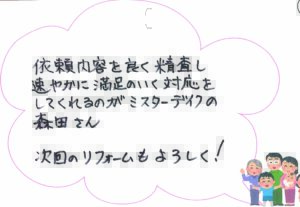 依頼内容を良く精査し
速やかに満足のいく対応を
してくれるのがミスターデイクの
森田さん
次回のリフォームもよろしく!